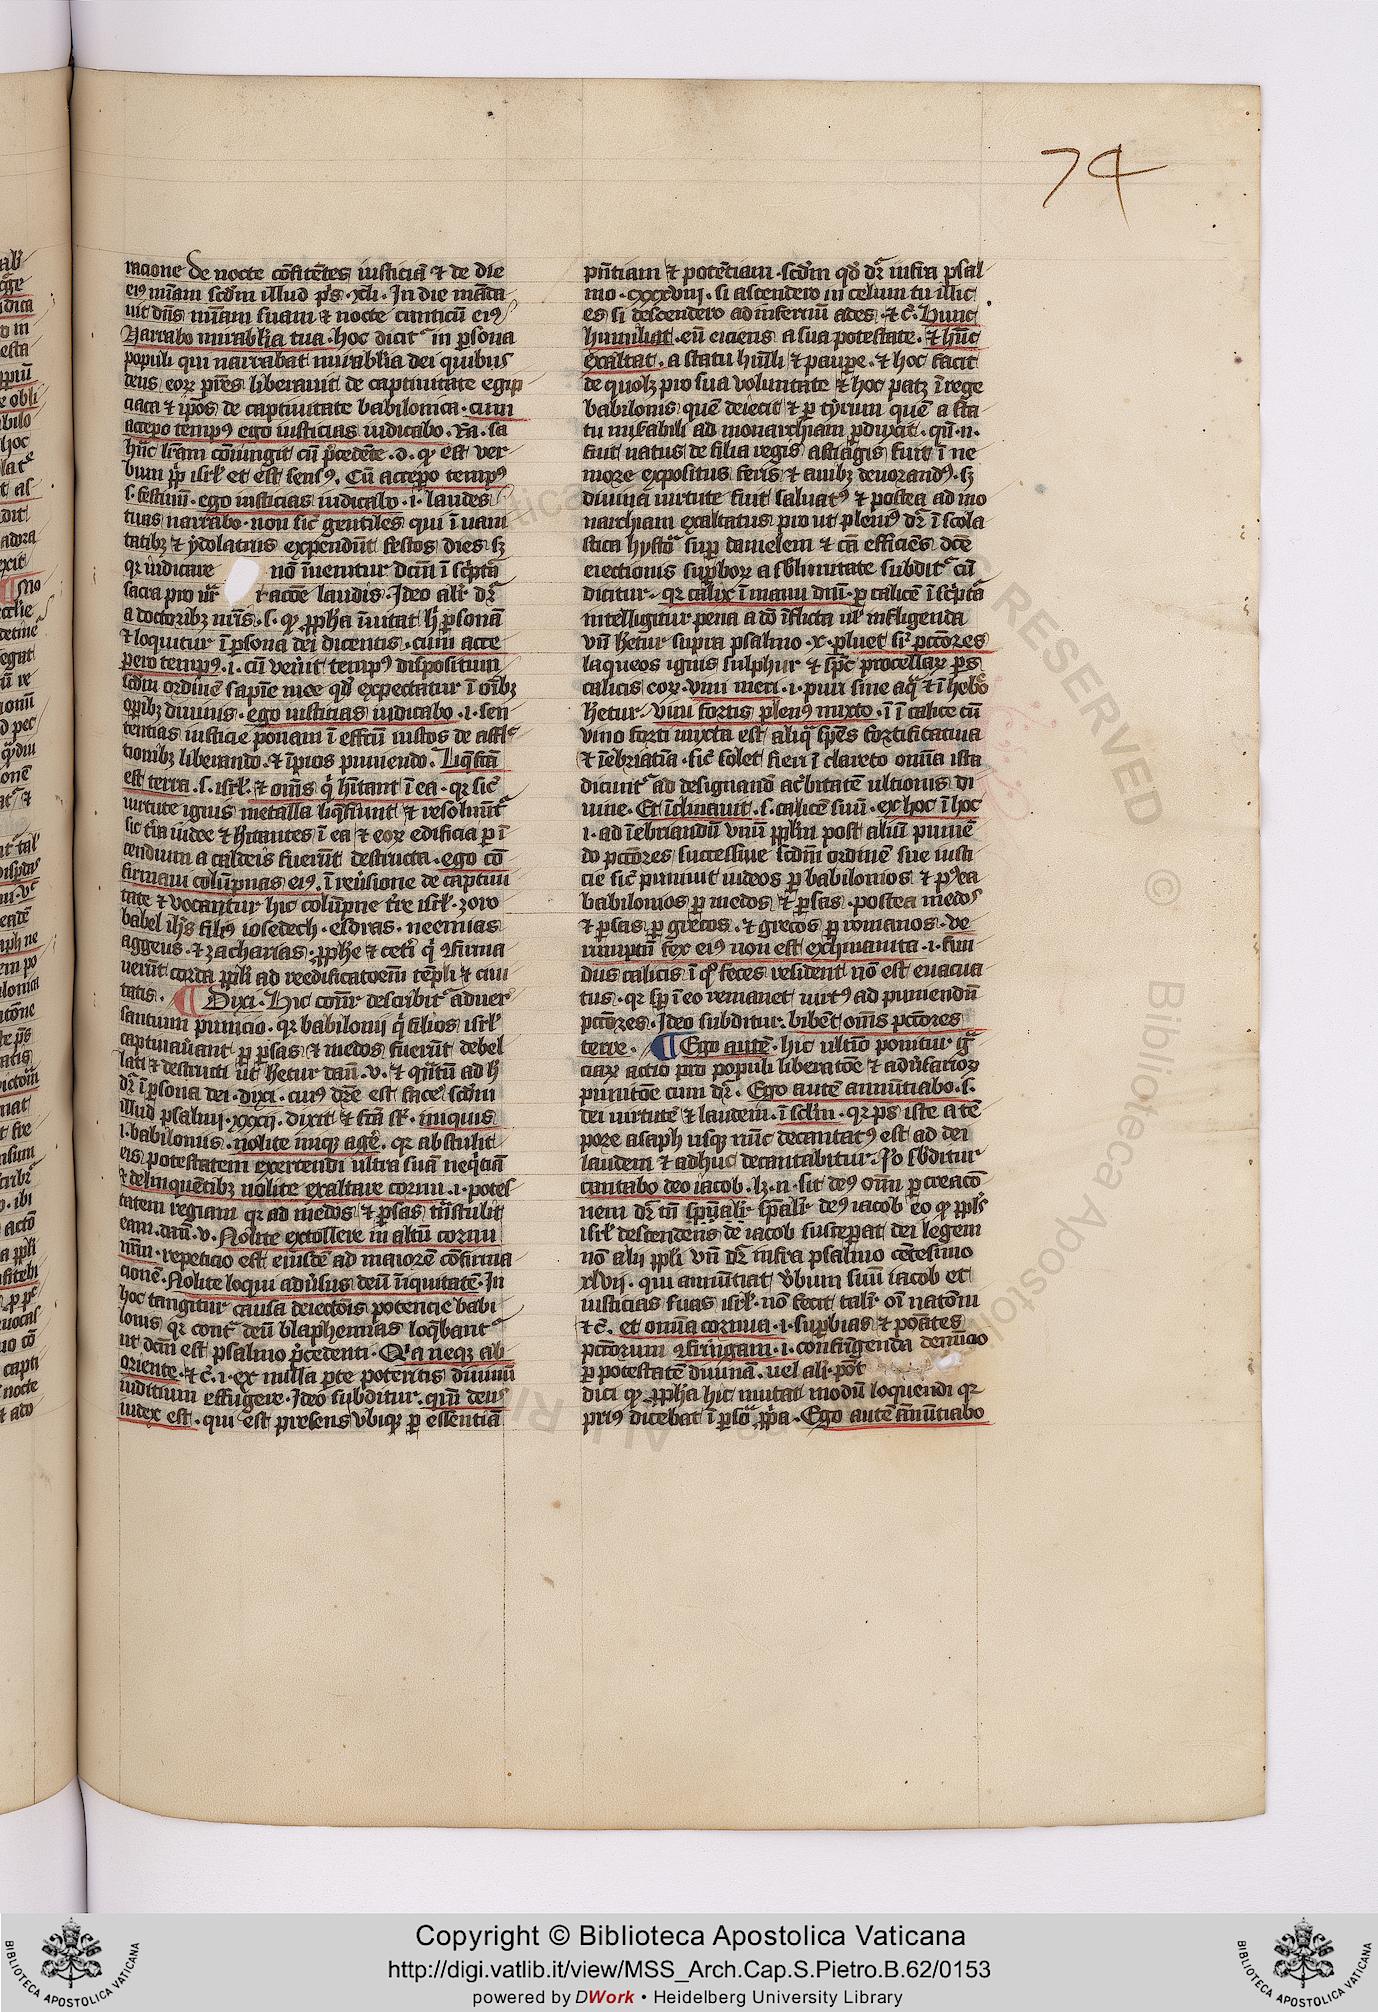 74
racione de nocte cōfitētes iusticiā ⁊ de die
eiꝰ mīam scd̄m illud ps̄ · xli · In die māda
uit dn̄s mīam suam ⁊ nocte canticū eiꝰ
Narrabo mirabilia tua · hoc dicit᷑ in ꝑsona
populi qui narrabat mirabilia dei quibus
deus eoꝝ pr̄es liberauit de captiuitate egip
ciaca ⁊ ip̄os de captiuitate babilonica · cum
accepo tempꝰ ego iusticias iudicabo · Ra · sa
bum ꝓp̄ isrl̓ et est sensꝰ · Cū accepero tempꝰ
s · festiuū · ego iusticias iudicabo · i · laudes
tuas narrabo · non sic̄ gentiles qui ī uani
tatibꝫ ⁊ ydolatriis expendūt festos dies sꝫ
qꝛ iudicare nō īuenitur dc̄m ī sc̄pta
sacra pro nr̄ actōe laudis · Ideo alīr dr̄
a doctoribꝫ nr̄is · s · ꝙ ꝓph̄a īuitat h̓ ꝑsonā
⁊ loquitur ī ꝑsona dei dicentis · cum acce
pero tempꝰ · i · cū ven̓it tempꝰ dispositum
scd̄m ordinē sapīe mee qd̓ expectatur ī oībꝫ
oꝑibꝫ diuinis · ego iusticias iudicabo · i · sen
tentias iusticie ponam ī effc̄ū iustos de affl̄c
tionibꝫ liberando · ⁊ īpios puniendo · Liq̄fc̄ā
est terra · s · isrl̓ · ⁊ om̄s q̄ h̄itant ī ea · qꝛ sic̄
uirtute ignis metalla liq̄fiunt ⁊ resoluūt᷑
sic tr̄a iudee ⁊ h̄itantes ī ea ⁊ eoꝝ edificia ꝑ ī
cendium a caldeis fuerūt destructa · ego cō
firmaui colūpnas eiꝰ · ī reūsione de captiui
tate ⁊ vocantur hic colūpne tr̄e isrl̓ · zoro
babel ih̄s filiꝰ iosedech · esdras · neemias
aggeus · ⁊ zacharias · ꝓph̄e ⁊ cet̓i q̄ ꝯfirma
uerūt corda ppl̄i ad reedificatoēm tēpli ⁊ ciui
tatis · ¶ Dixi · Hic cōn̄r describit᷑ aduer
santium punicio · qꝛ babilonij q̄ filios isrl̓
captiuau̓ant ꝑ ꝑsas ⁊ medos fuerūt debel
lati ⁊ destructi ut h̄etur dan̄ · v · ⁊ qn̄tū ad h̓
dr̄ ī ꝑsona dei · dixi · cuiꝰ dc̄re est face᷑ scd̄m
illud psalmi · xxxij · dixit ⁊ fc̄a st̄ · iniquis
i · babilonis · nolite iniqꝫ age᷑ · qꝛ abstulit
eis potestatem exercendi ultra suā neq̄tiā
⁊ delinquētibꝫ nolite exaltare cornu · i · potes
tatem regiam qꝛ ad medos ⁊ ꝑsas trāstulit
eam · dan̄ · v · Nolite extollere in altū cornu
vr̄m · repeticio est eiusdē ad maiorē cōfirma
cionē · Nolite loqui adūsus deū īiquitatē · In
hoc tangitur causa deiectōis potencie babi
lonis qꝛ cont᷑ deū blasphemias loq̄bant᷑
ut dc̄m est psalmo p̄cedenti · Q̄a neqꝫ ab
oriente · ⁊ c̓ · i · ex nulla ꝑte potētis diuinū
iuditium effugere · Ideo subditur · qm̄ deus
iudex est · qui est presens vbiqꝫ ꝑ essentiā
pn̄tiam ⁊ potētiam · scd̄m qd̓ dr̄ infra psal
mo · cxxxviij · si ascendero in celum tu illic
es si descendero ad infernū ades · ⁊ c̓ · Hunc
humiliat · eū eiciens a sua potestate · ⁊ hūc
exaltat · a statu hūili ⁊ pauꝑe · ⁊ hoc facit
de quolꝫ pro sua voluntate ⁊ hoc patꝫ ī rege
babilonis quē deiecit ⁊ ꝑ tyrum quē a sta
tu mīrabili ad monarchiam ꝑduxit · qn̄ · n ·
fuit natus de filia regis astiagis fuit ī ne
more expositus feris ⁊ auibꝫ deuorandꝰ · sꝫ
diuina uirtute fuit saluatꝰ ⁊ postea ad mo
narchiam exaltatus prout pleniꝰ dr̄ ī scola
stica hysto᷑ suꝑ danielem ⁊ cā efficiēs dc̄e
eiectionis suꝑboꝝ a sb̄limitate subdit᷑ cū
dicitur · qꝛ calix ī manu dn̄i · ꝑ calicē ī sc̄pta᷑
intelligitur pena a dō īflicta ul̓ infligenda
vn̄ h̄etur supra psalmo · x · pluet sr̄ pctōres
laqueos ignis sulphur ⁊ sp̄c procellaꝝ ps̄
calicis eoꝝ · vini meri · i · puri sine aq̄ ⁊ ī hebo᷑
h̄etur · vinū fortis plenꝰ mixto · i ī calice cū
vino forti mixta est aliq̄ sp̄es fortificatiua
⁊ īebriatiā · sic̄ solet fieri ī clareto omīa ista
dicunt᷑ ad designandū ac̓bitatē ultionis di
uine · Et īclinauit · s · calicē suū · ex hoc ī hoc
i · ad īebriandū vnū ppl̄m post aliū punien̄
do pctōres successiue scd̄m ordinē sue iusti
cie sic̄ puniuit iudeos ꝑ babilonios ⁊ pꝰea
babilonios ꝑ medos ⁊ ꝑsas · postea medos
⁊ ꝑsas ꝑ grecos · ⁊ grecos ꝑ romanos · ve
rumptn̄ fex eiꝰ non est exinanita · i · fun
dus calicis ī q̓ feces resident nō est euacua
tus · qꝛ sp̄ ī eo remanet uirtꝰ ad puniendū
pctōres · Ideo subditur · bibēt om̄s pctōres
terre · ¶ Ego autē · hic ultīo ponitur gr̄
ciaꝝ actio pro populi liberatōe ⁊ adūsarioꝝ
punitōe cum dr̄ · Ego autē annūtiabo · s ·
dei uirtutē ⁊ laudem · ī sc̄lm · qꝛ ps̄ iste a tē
pore asaph usqꝫ nūc decantatꝰ est ad dei
laudem ⁊ adhuc decantabitur · Iō sb̄ditur
cantabo deo iacob · lꝫ · n · sit deꝰ oīm ꝑ creacō
nem dr̄ tn̄ sp̄ualr̄ sp̄alr̄ deꝰ iacob eo ꝙ ppl̓s
isrl̓ descendens de iacob susceꝑat dei legem
nō alij ppl̄i vn̄ dr̄ infra psalmo cētesimo
xlvij · qui annūtiat v̓bum suū iacob et
iusticias suas isrl̓ · nō fecit talir̄ oī natōni
⁊ c̓ · et omīa cornua · i · suꝑbias ⁊ potātes
pctōrum ꝯfrīgam · i · confrīgenda denūcio
ꝑ potestatē diuinā · uel alr̄ · pōt
dici ꝙ ꝓph̄a hic mutat modū loquendi qꝛ
priꝰ dicebat ī ꝑsōa ꝓp̄a · Ego autē ānūtiabo
Copyright © Biblioteca Apostolica Vaticana
http://digi.vatlib.it/view/MSS_Arch.Cap.S.Pietro.B.62/0153
powered by DWork • Heidelberg University Library